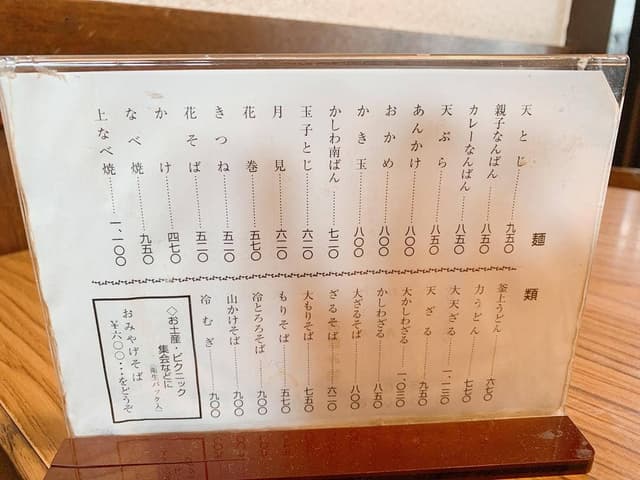 麺類
天とじ……九五〇
親子なんばん……八五〇
カレーなんばん……八五〇
天ぷら……八五〇
あんかけ……八〇〇
おかめ……八〇〇
かき玉……八〇〇
かしわ南ばん……七二〇
玉子とじ……六二〇
月見……六二〇
花巻……五七〇
きつね……五二〇
花そば……五二〇
かけ……四七〇
なべ焼……九五〇
上なべ焼……一、一〇〇
釜上うどん……六七〇
力うどん……七七〇
大天ざる……一、一三〇
天ざる……九五〇
大かしわざる……一、〇三〇
かしわざる……八五〇
大ざるそば……八〇〇
ざるそば……六二〇
大もりそば……七五〇
もりそば……五七〇
冷とろろそば……九〇〇
山かけそば……九〇〇
冷むぎ……九〇〇
◇お土産・ピクニック
集会などに
(衛生パック入)
おみやげそば
¥六〇〇…をどうぞ